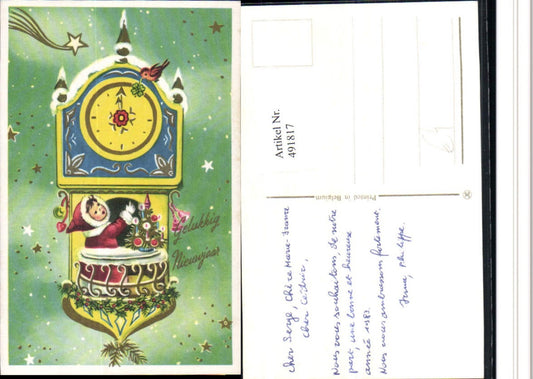 Gelukkig
Nieuwjaar
Artikel Nr.
491817
Printed in Belgium
Cher Serge, Chère Marie-France
Cher Cédric,
Nous vous souhaitons, de notre
part, une bonne et heureuse
année 1987.
Nous vous embrassons fortement.
Philippe.